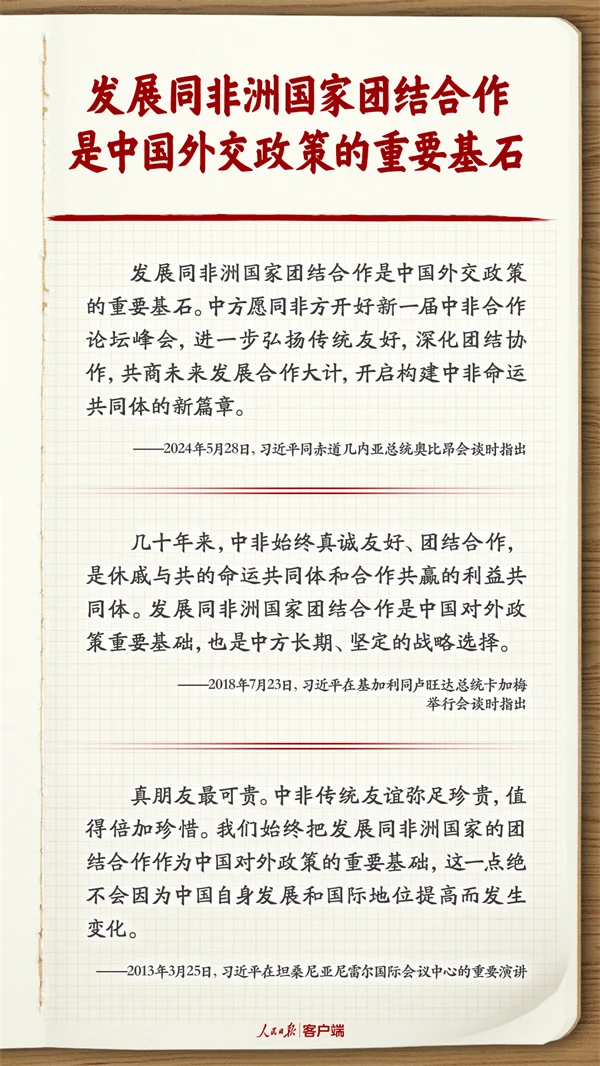 发展同非洲国家团结合作
是中国外交政策的重要基石
发展同非洲国家团结合作是中国外交政策
的重要基石。中方愿同非方开好新一届中非合作
论坛峰会，进一步弘扬传统友好，深化团结协
作，共商未来发展合作大计，开启构建中非命运
共同体的新篇章。
——2024年5月28日，习近平同赤道几内亚总统奥比昂会谈时指出
几十年来，中非始终真诚友好、团结合作，
是休戚与共的命运共同体和合作共赢的利益共
同体。发展同非洲国家团结合作是中国对外政
策重要基础，也是中方长期、坚定的战略选择。
——2018年7月23日，习近平在基加利同卢旺达总统卡加梅
举行会谈时指出
真朋友最可贵。中非传统友谊弥足珍贵，值
得倍加珍惜。我们始终把发展同非洲国家的团
结合作作为中国对外政策的重要基础，这一点绝
不会因为中国自身发展和国际地位提高而发生
变化。
——2013年3月25日，习近平在坦桑尼亚尼雷尔国际会议中心的重要演讲
人民日报 客户端